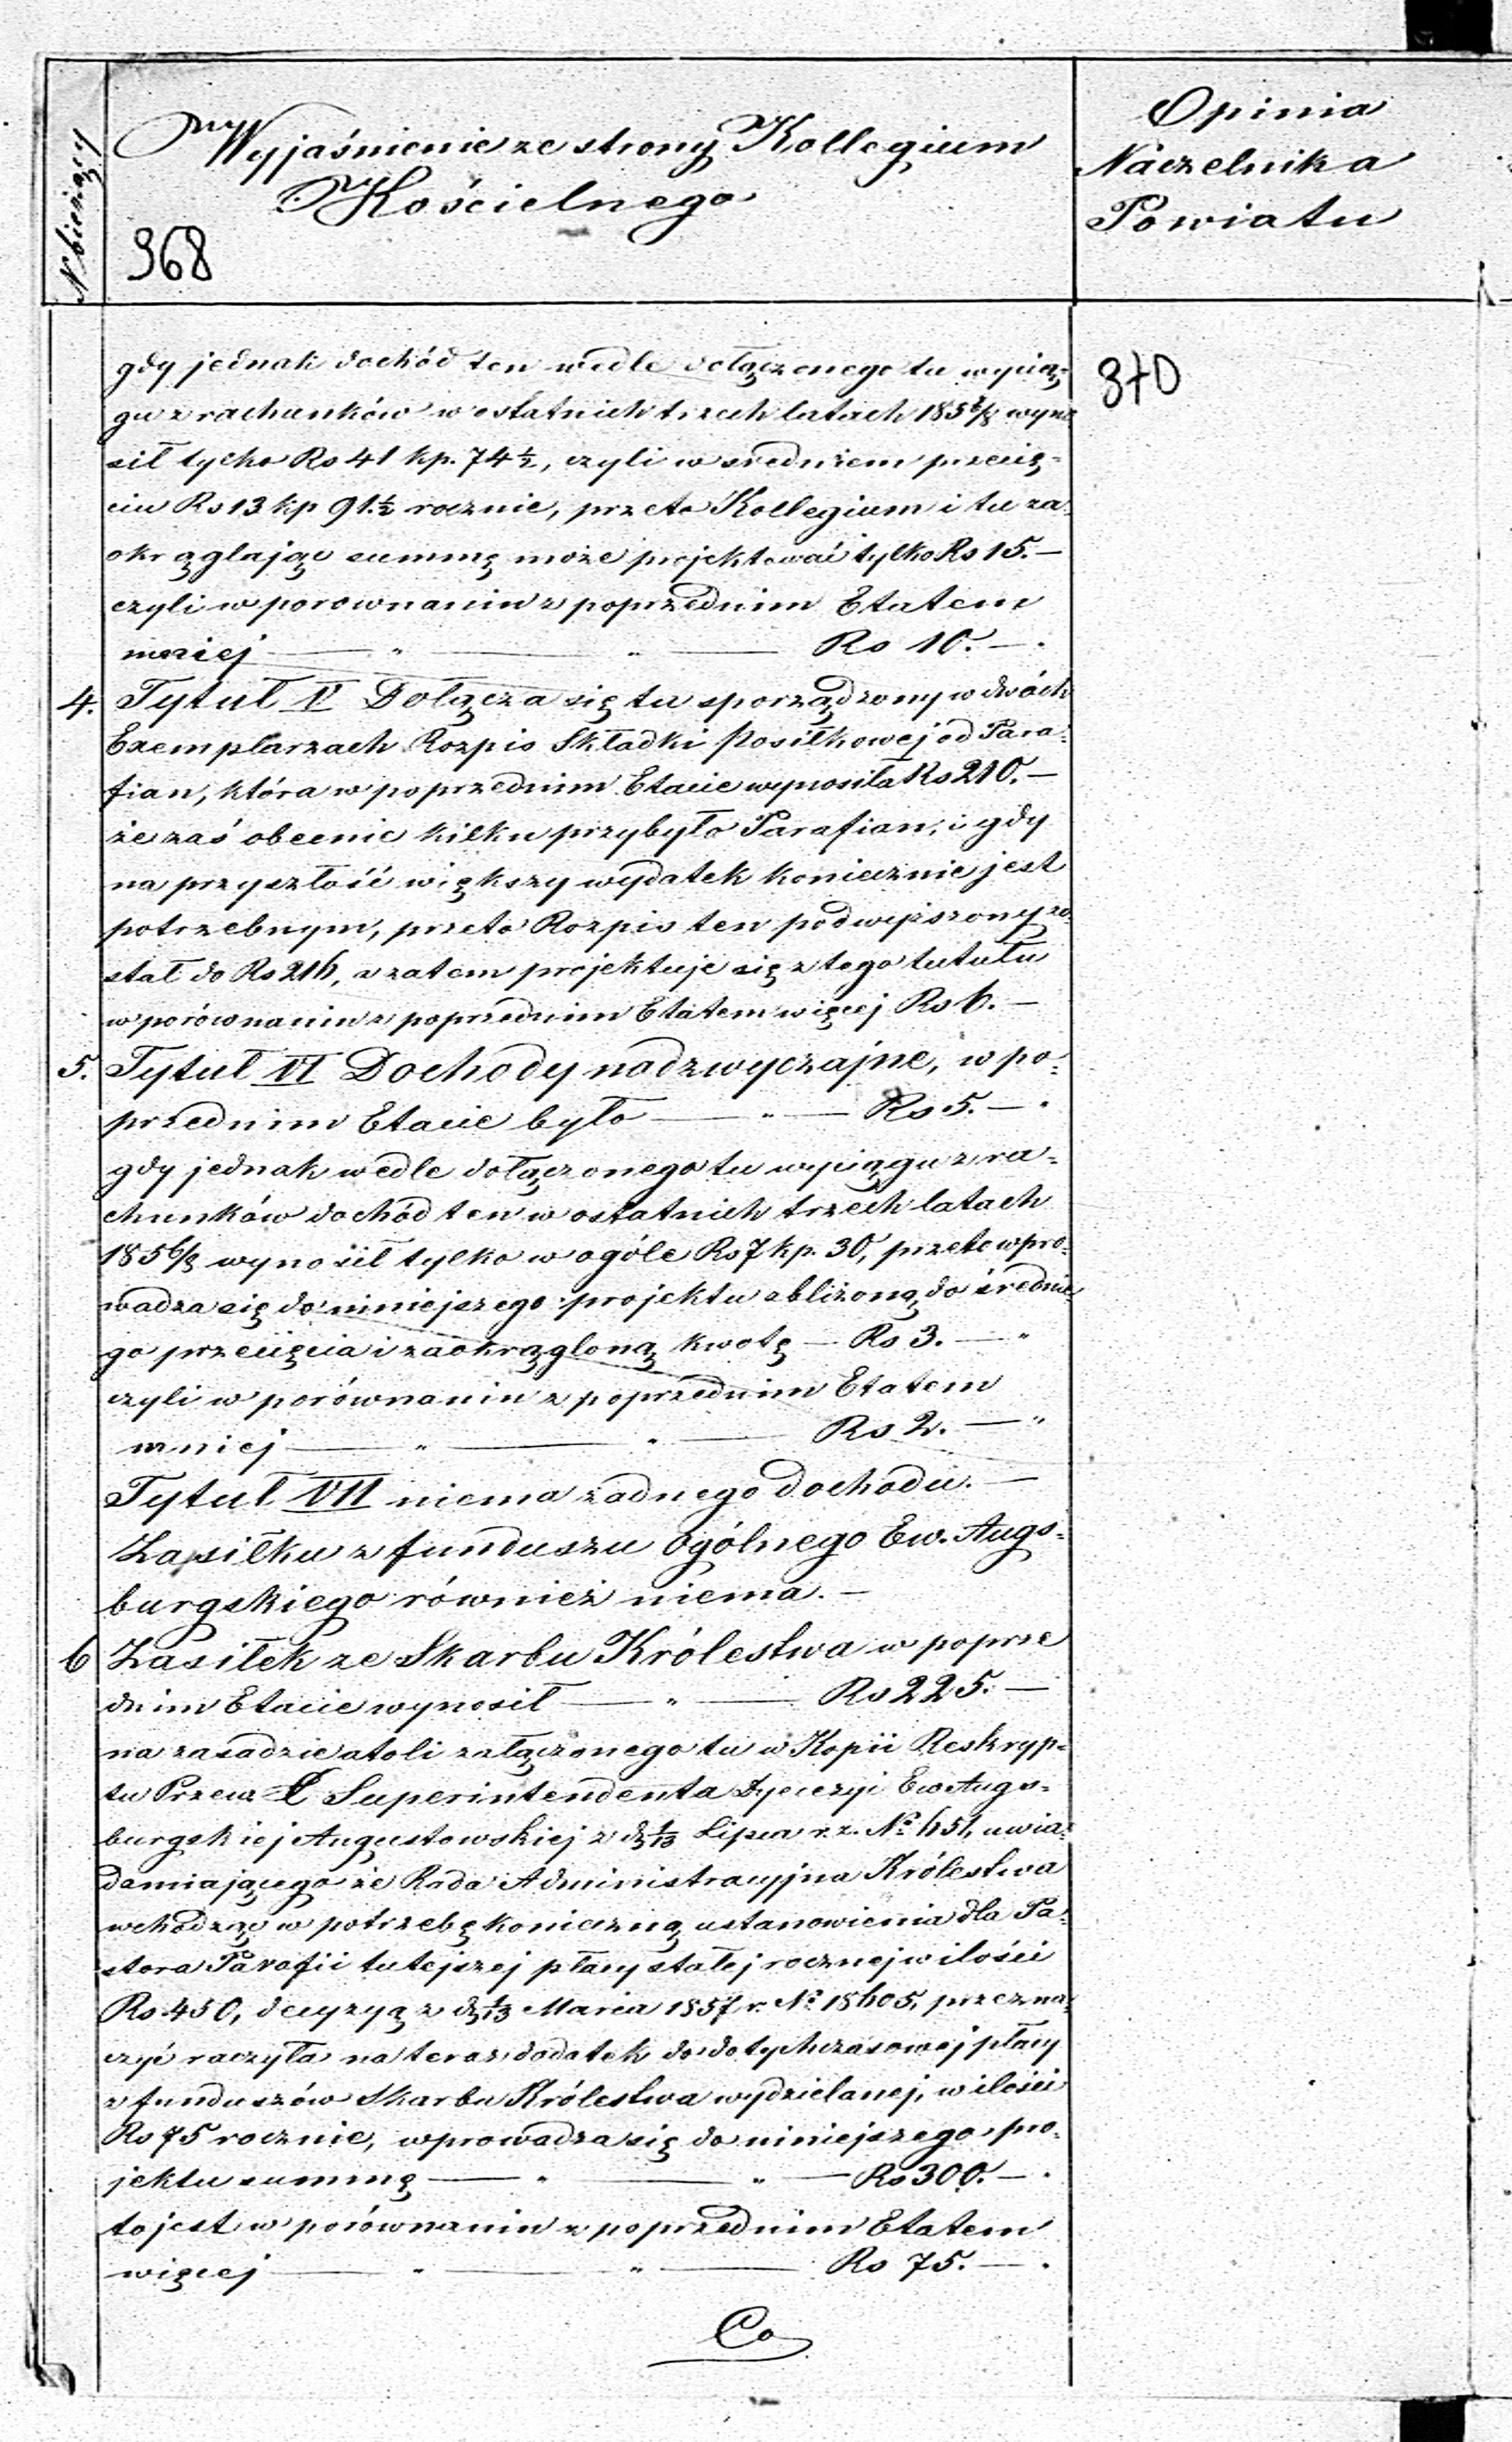 N bieżący
Wyjaśnienie ze strony Kollegium
Kościelnego
968
Opinia
Naczelnika
Powiatu
370
gdy jednak dochód ten wedle dołączonego tu wycią=
gu z rachunków w ostatnich trzech latach 185 6/8 wyno
sił tylko Rs 41 kp. 74½, czyli w średniem przecię=
ciu Rs 13 kp 91.½ rocznie, przeto Kollegium i tu za=
okrąglając summę może projektować tylko Rs 15.—
czyli w porownaniu z poprzednim Etatem
mniej — " — " — Rs 10.—.
4. Tytuł V Dołącza się tu sporządzony w dwóch
Exemplarzach Rozpis Składki Posiłkowej od Para=
fian, która w poprzednim Etacie wynosiła Rs 210.—
że zaś obecnie kilku przybyło Parafian, i gdy
na przyszłość większy wydatek koniecznie jest
potrzebnym, przeto Rozpis ten podwyższony zo=
stał do Rs 216, a zatem projektuje się z tego tutułu
w porównaniu z poprzednim Etatem więcej Rs 6.—
5. Tytuł VI Dochody nadzwyczajne, w po=
przednim Etacie było — " — Rs 5.—.
gdy jednak wedle dołączonego tu wyciągu z ra=
chunków dochód ten w ostatnich trzech latach
185 6/8 wynosił tylko w ogóle Rs 7 kp. 30, przeto wpro=
wadza się do niniejszego projektu zbliżoną do średnie=
go przecięcia i zaokrągloną kwotę — Rs 3.— "
czyli w porównaniu z poprzednim Etatem
mniej — " — " — Rs 2.— "
Tytuł VII niema żadnego dochodu.—
Zasiłku z funduszu ogólnego Ew. Augs=
burgskiego również niema.—
6 Zasiłek ze Skarbu Królestwa w poprze
dnim Etacie wynosił — " — Rs 225.—
na zasadzie atoli załączonego tu w Kopii Reskryp=
tu Przew Superintendenta Dyecezyi Ew Augs=
burgskiej Augustowskiej z d 1/13 Lipca r. z. Nº 651, uwia=
damiającego że Rada Administracyjna Królestwa
wchodząc w potrzebę konieczną ustanowienia dla Pa=
stora Parafii tutejszej płacy stałej rocznej w ilości
Rs 450, decyzyą z d 1/13 Marca 1857 r. Nº 18605, przezna=
czyć raczyła na teraz dodatek do dotychczasowej płacy
z funduszów Skarbu Królestwa wydzielanej, w ilości
Rs 75 rocznie, wprowadza się do niniejszego pro=
jektu summę — " — " — Rs 300.—.
to jest w porównaniu z poprzednim Etatem
więcej — " — " — Rs 75.—.
Co